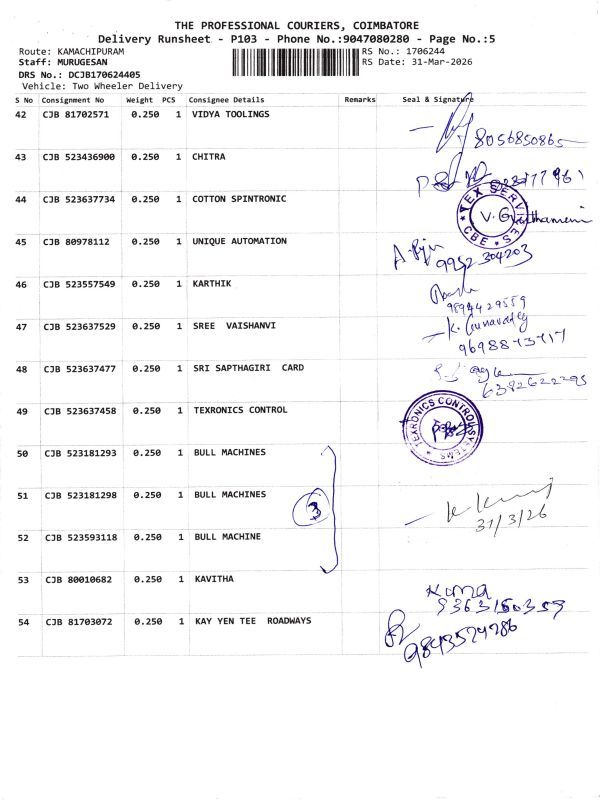 THE PROFESSIONAL COURIERS, COIMBATORE
Delivery Runsheet - P103 - Phone No.:9047080280 - Page No.:5
Route: KAMACHIPURAM RS No.: 1706244
Staff: MURUGESAN RS Date: 31-Mar-2026
DRS No.: DCJB170624405
Vehicle: Two Wheeler Delivery
S No Consignment No Weight PCS Consignee Details Remarks Seal & Signature
42 CJB 81702571 0.250 1 VIDYA TOOLINGS
8056850865
43 CJB 523436900 0.250 1 CHITRA
44 CJB 523637734 0.250 1 COTTON SPINTRONIC
TEX SERV
CBE
45 CJB 80978112 0.250 1 UNIQUE AUTOMATION
9952304203
46 CJB 523557549 0.250 1 KARTHIK
9894429559
47 CJB 523637529 0.250 1 SREE VAISHANVI
K. Gunavathy
9698873717
48 CJB 523637477 0.250 1 SRI SAPTHAGIRI CARD
6382622295
49 CJB 523637458 0.250 1 TEXRONICS CONTROL
TEXRONICS CONTROL SYSTEMS
50 CJB 523181293 0.250 1 BULL MACHINES
51 CJB 523181298 0.250 1 BULL MACHINES
3
31/3/26
52 CJB 523593118 0.250 1 BULL MACHINE
53 CJB 80010682 0.250 1 KAVITHA
9363150359
54 CJB 81703072 0.250 1 KAY YEN TEE ROADWAYS
9843574286